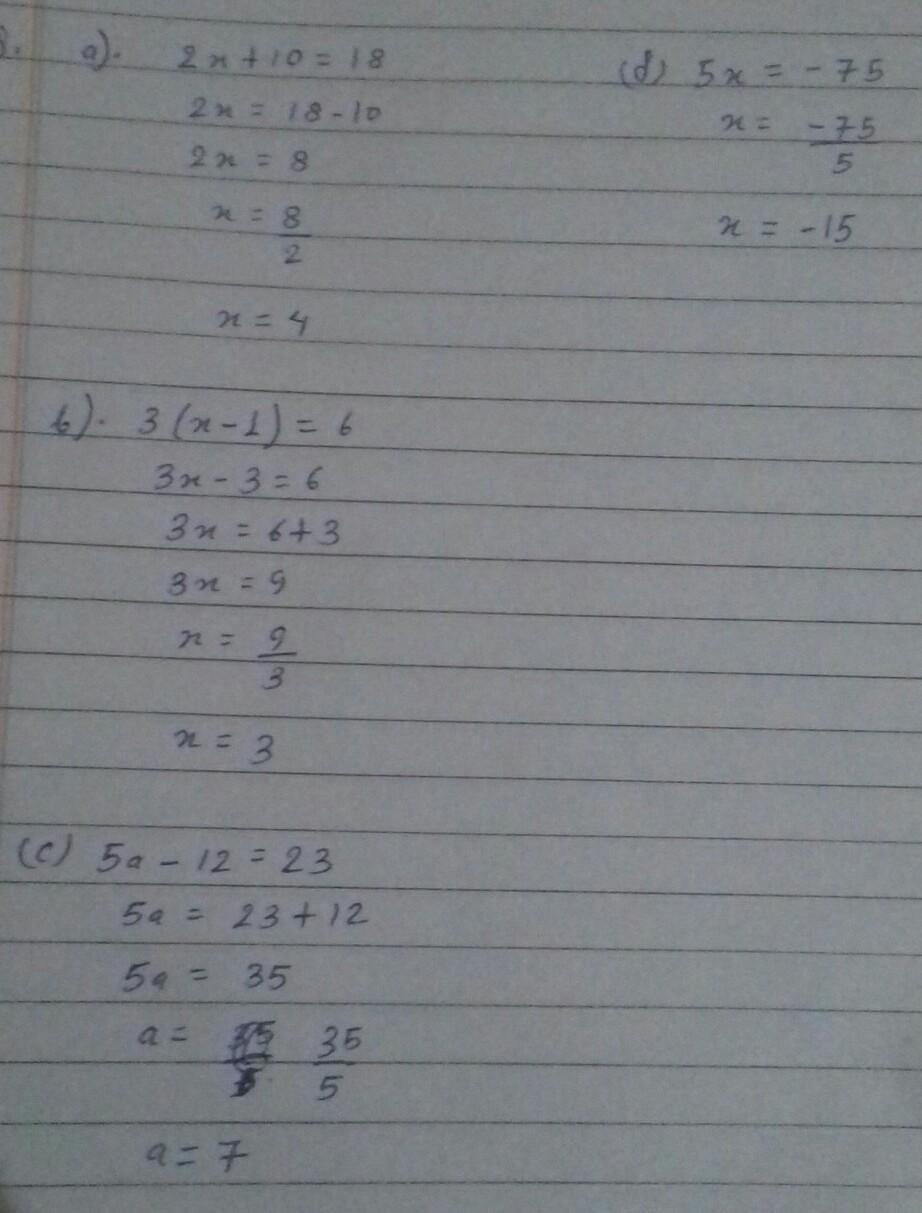 a). 2x + 10 = 18
2x = 18 - 10
2x = 8
x = 8/2
x = 4
b). 3(x - 1) = 6
3x - 3 = 6
3x = 6 + 3
3x = 9
x = 9/3
x = 3
(c) 5a - 12 = 23
5a = 23 + 12
5a = 35
a = 35/5
a = 7
(d) 5x = -75
x = -75/5
x = -15